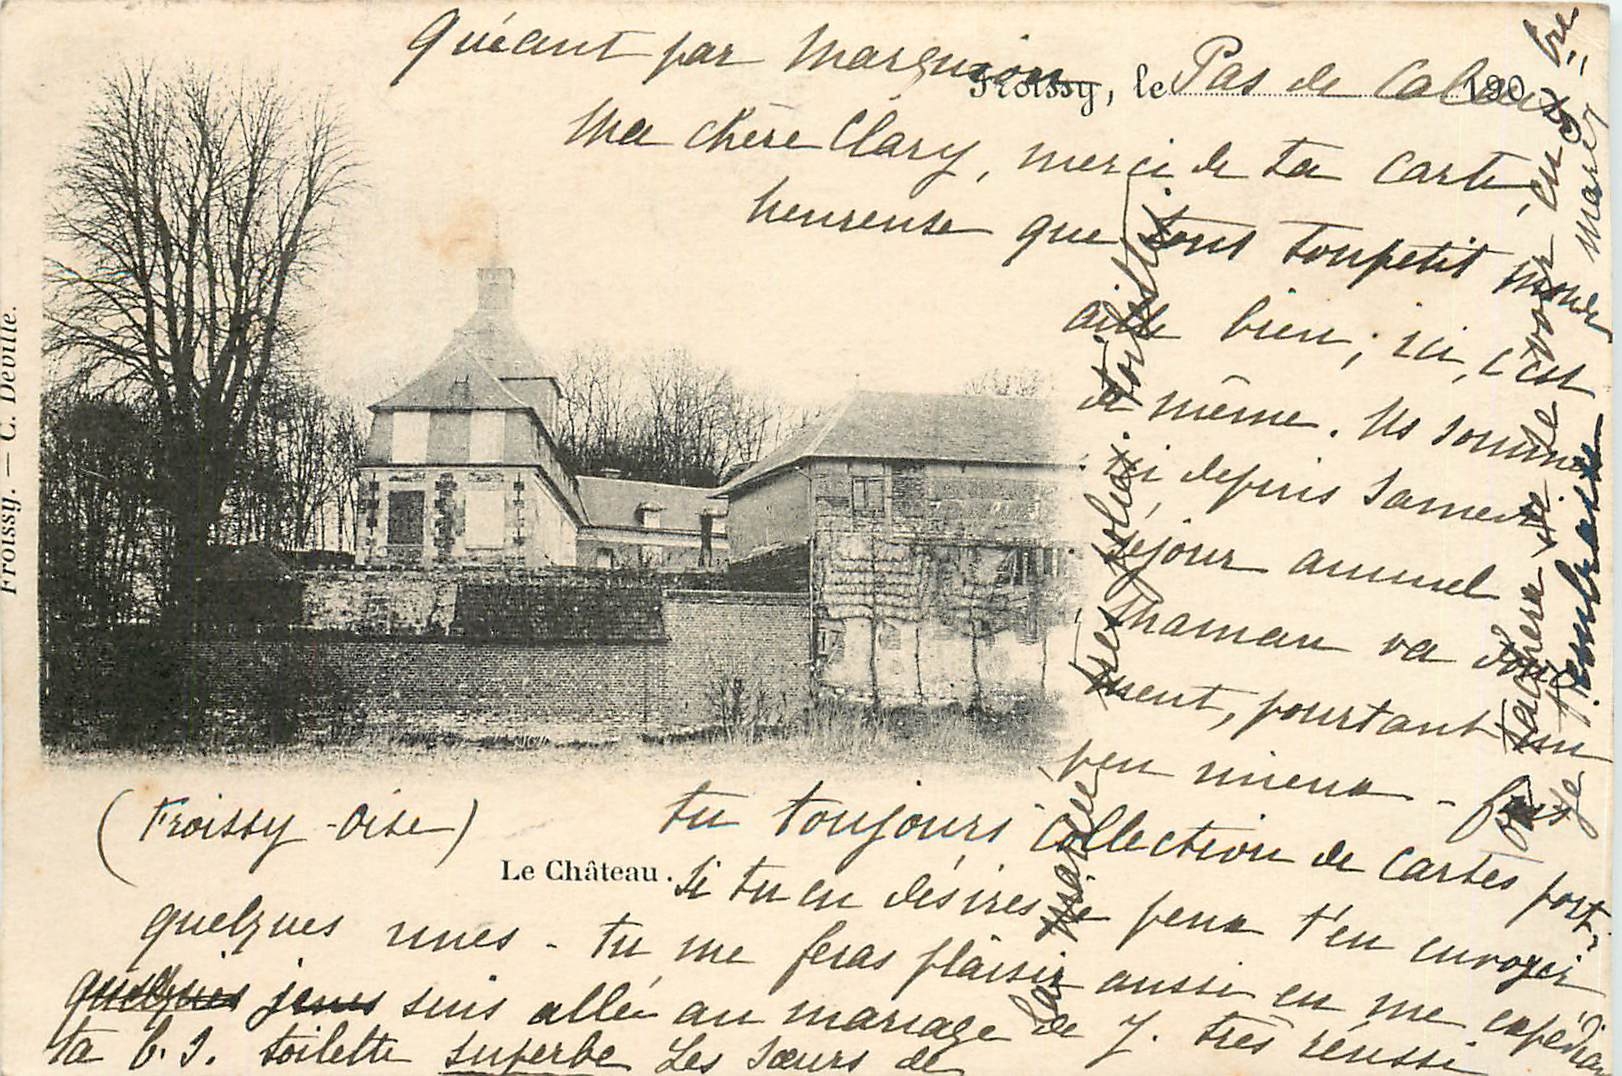 Quéant par Marquion Pas de Calais
Froissy, le 190
Ma chère Clary, merci de ta carte,
heureuse que tout ton petit monde
aille bien ; ici, c'est
de même. Ns sommes
ici depuis samedi
séjour annuel
Maman va douce
ment, pourtant un
peu mieux - fais
tu toujours collection de cartes post.
Si tu en désires je peux t'en envoyer
quelques unes - tu me feras plaisir aussi en me expédian
quelques unes suis allée au mariage de J. très réussi
ta b. s. toilette superbe Les sœurs de
la mariée très jolies. toilettes
Je tacherai de te voir en 7bre
(Froissy - Oise)
Le Château.
Froissy. — C. Deville.